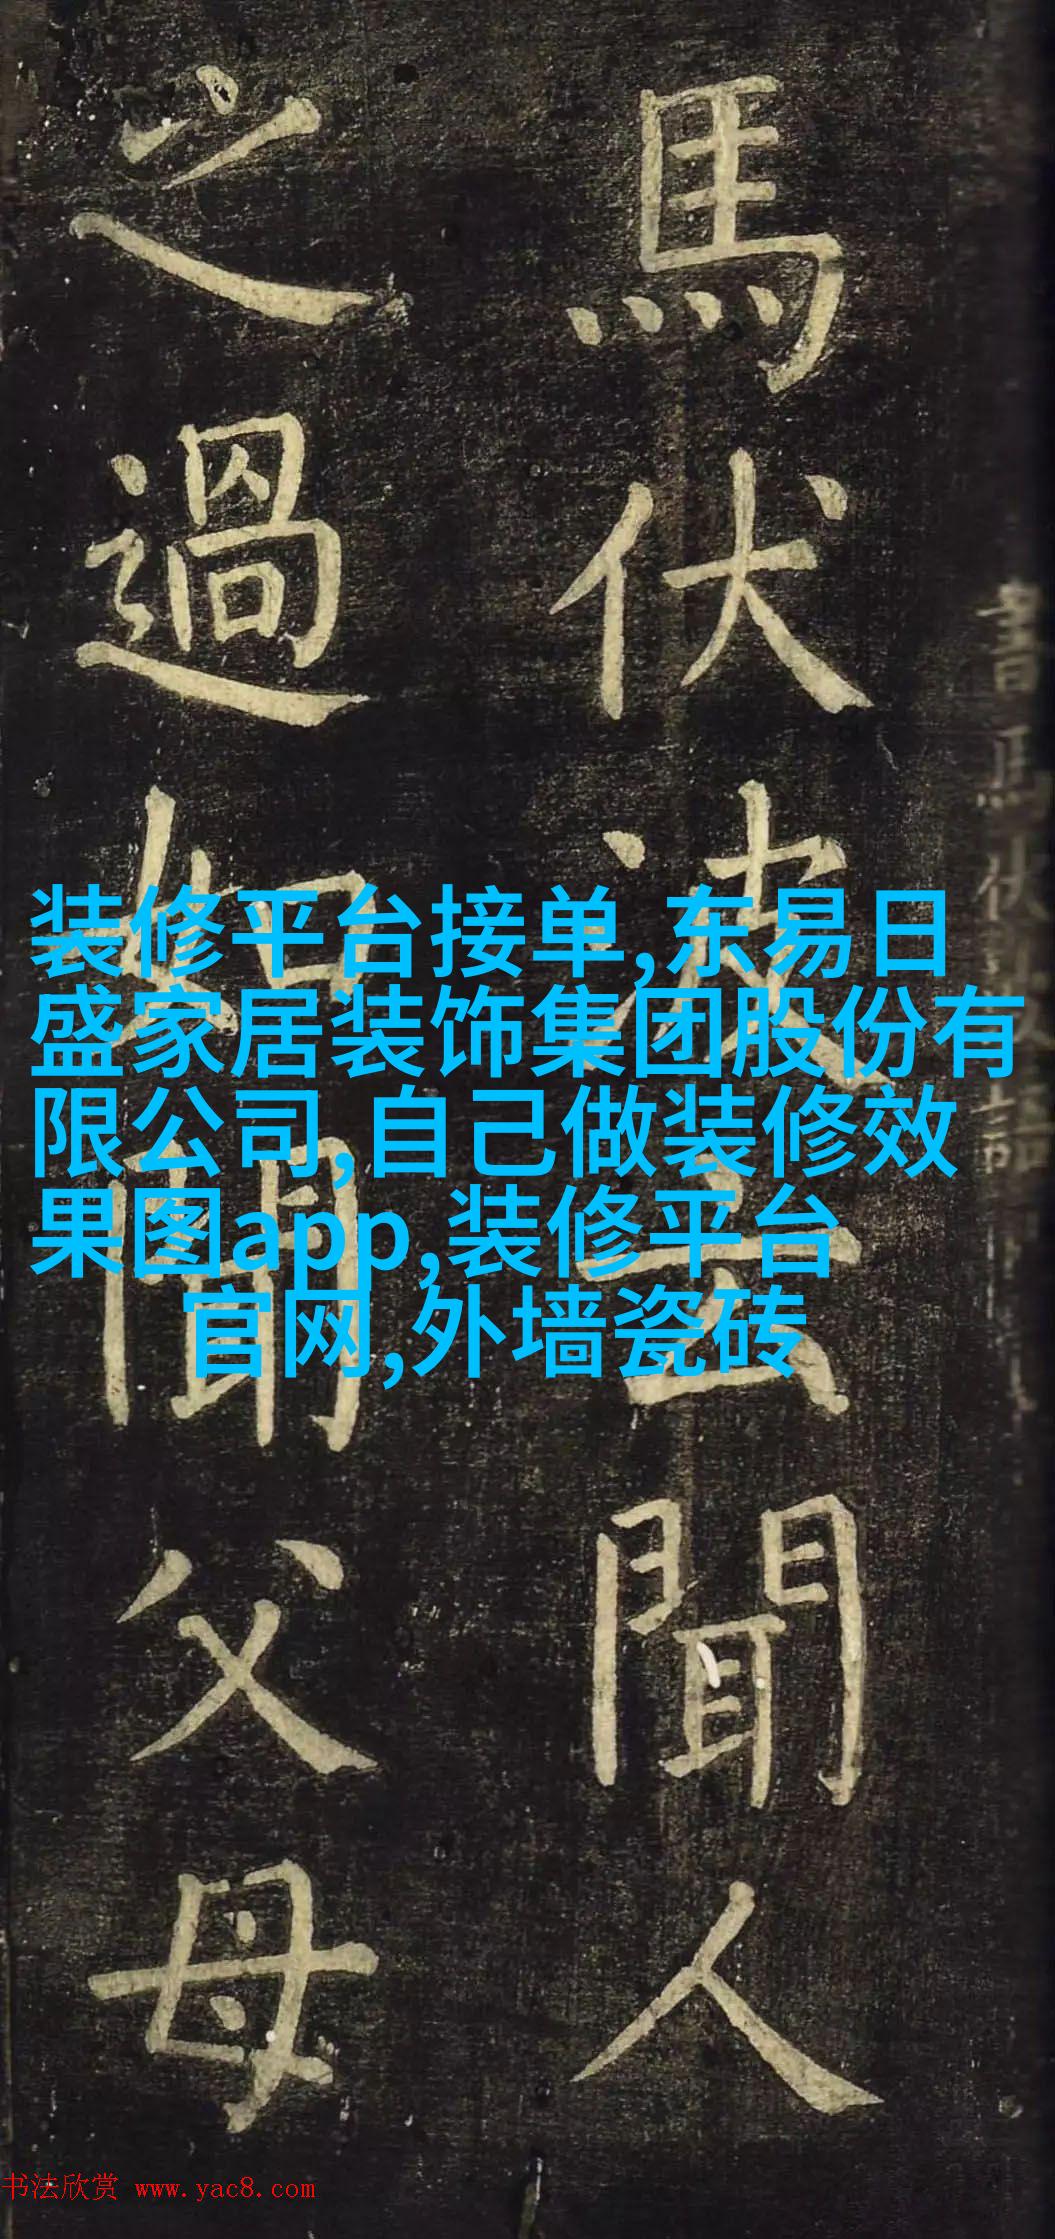 馬伏波云聞人
之過如聞父母
装修平台接单,东易日
盛家居装饰集团股份有
限公司,自己做装修效
果图app,装修平台
官网,外墙瓷砖
书法欣赏 www.yac8.com